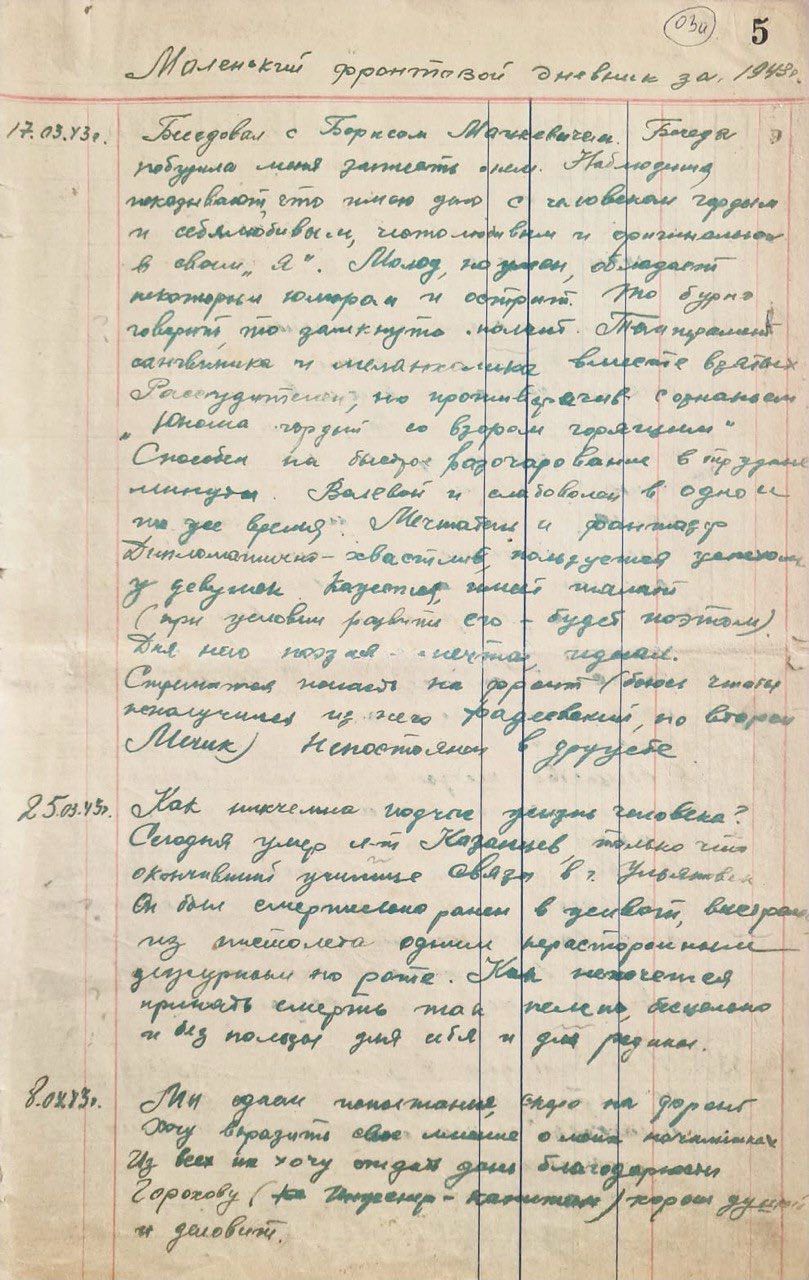 03и
5
Маленький фронтовой дневник за 1943г.
17.03.43г. Беседовал с Борисом Мацкевичем. Беседа
побудила меня записать о нем. Наблюдения
показывают, что имею дело с человеком гордым
и себялюбивым, честолюбивым и оригинальным
в своем "Я". Молод, но умен, обладает
некоторым юмором и острит. То бурно
говорит, то замкнуто молчит. Темперамент
сангвиника и меланхолика вместе взятых
Рассудителен, но противоречив сознаньем
"Юноша гордый со взором горящим"
Способен на быстрое разочарование в трудные
минуты. Волевой и слабоволен в одно и
то же время. Мечтатель и фантазер
Дипломатично-хвастлив, пользуется успехом
у девушек. Кажется, имеет талант
(при условии развития его - будет поэтом)
Для него поэзия - мечта, идеал.
Стремится попасть на фронт (боюсь чтобы
неполучился из него фадеевский, но второй
Мечик) Непостоянен в дружбе
25.03.43г. Как никчемна подчас жизнь человека?
Сегодня умер л-т Казанцев, только что
окончивший училище связи в г. Ульяновск
Он был смертельно ранен в живот, выстрелом
из пистолета одним нерасторопным
дежурным по роте. Как нехочется
принять смерть так нелепо, бесцельно
и без пользы для себя и для родины.
8.04.43г. Мы сдали испытания, скоро на фронт
Хочу выразить свое мнение о моих начальниках
Из всех их хочу отдать дань благодарности
Горохову (инженер-капитан) хорош душой
и деловит.